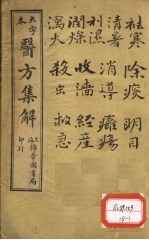 祛寒
清暑
利濕
潤燥
瀉火
除痰
消導
收濇
殺虫
明目
癰瘍
經産
救急
大字本
醫方集解
上海錦章圖書局印行